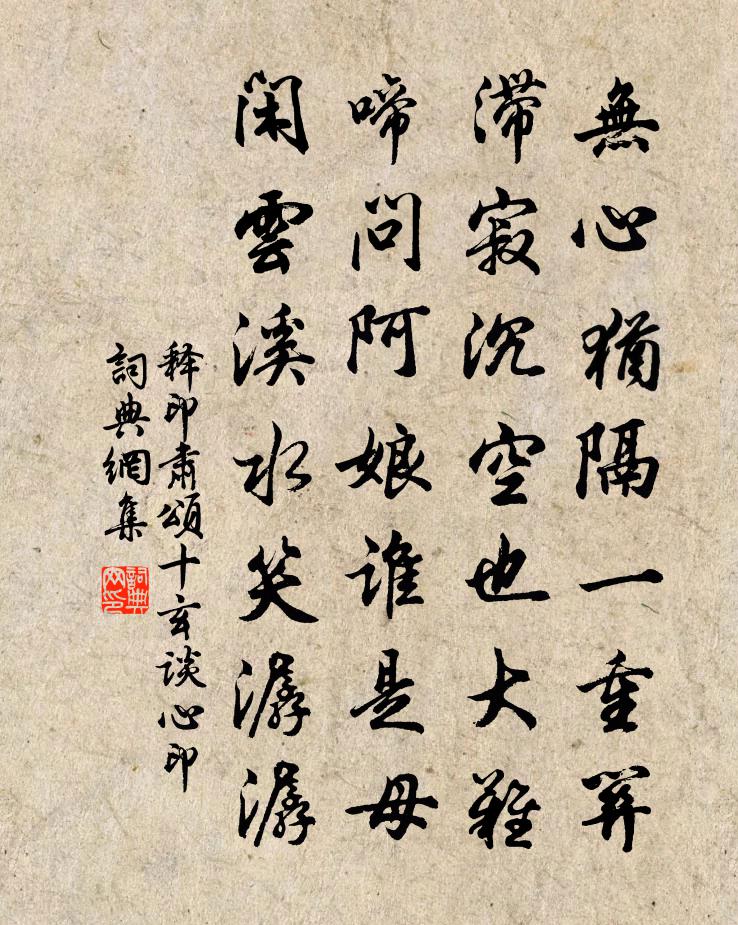 無心猶隔一重關
滯寂沉空也大難
啼問阿娘誰是母
閑雲溪水笑潺潺
释印肅頌十玄談心印
詞典網集
詞典网印